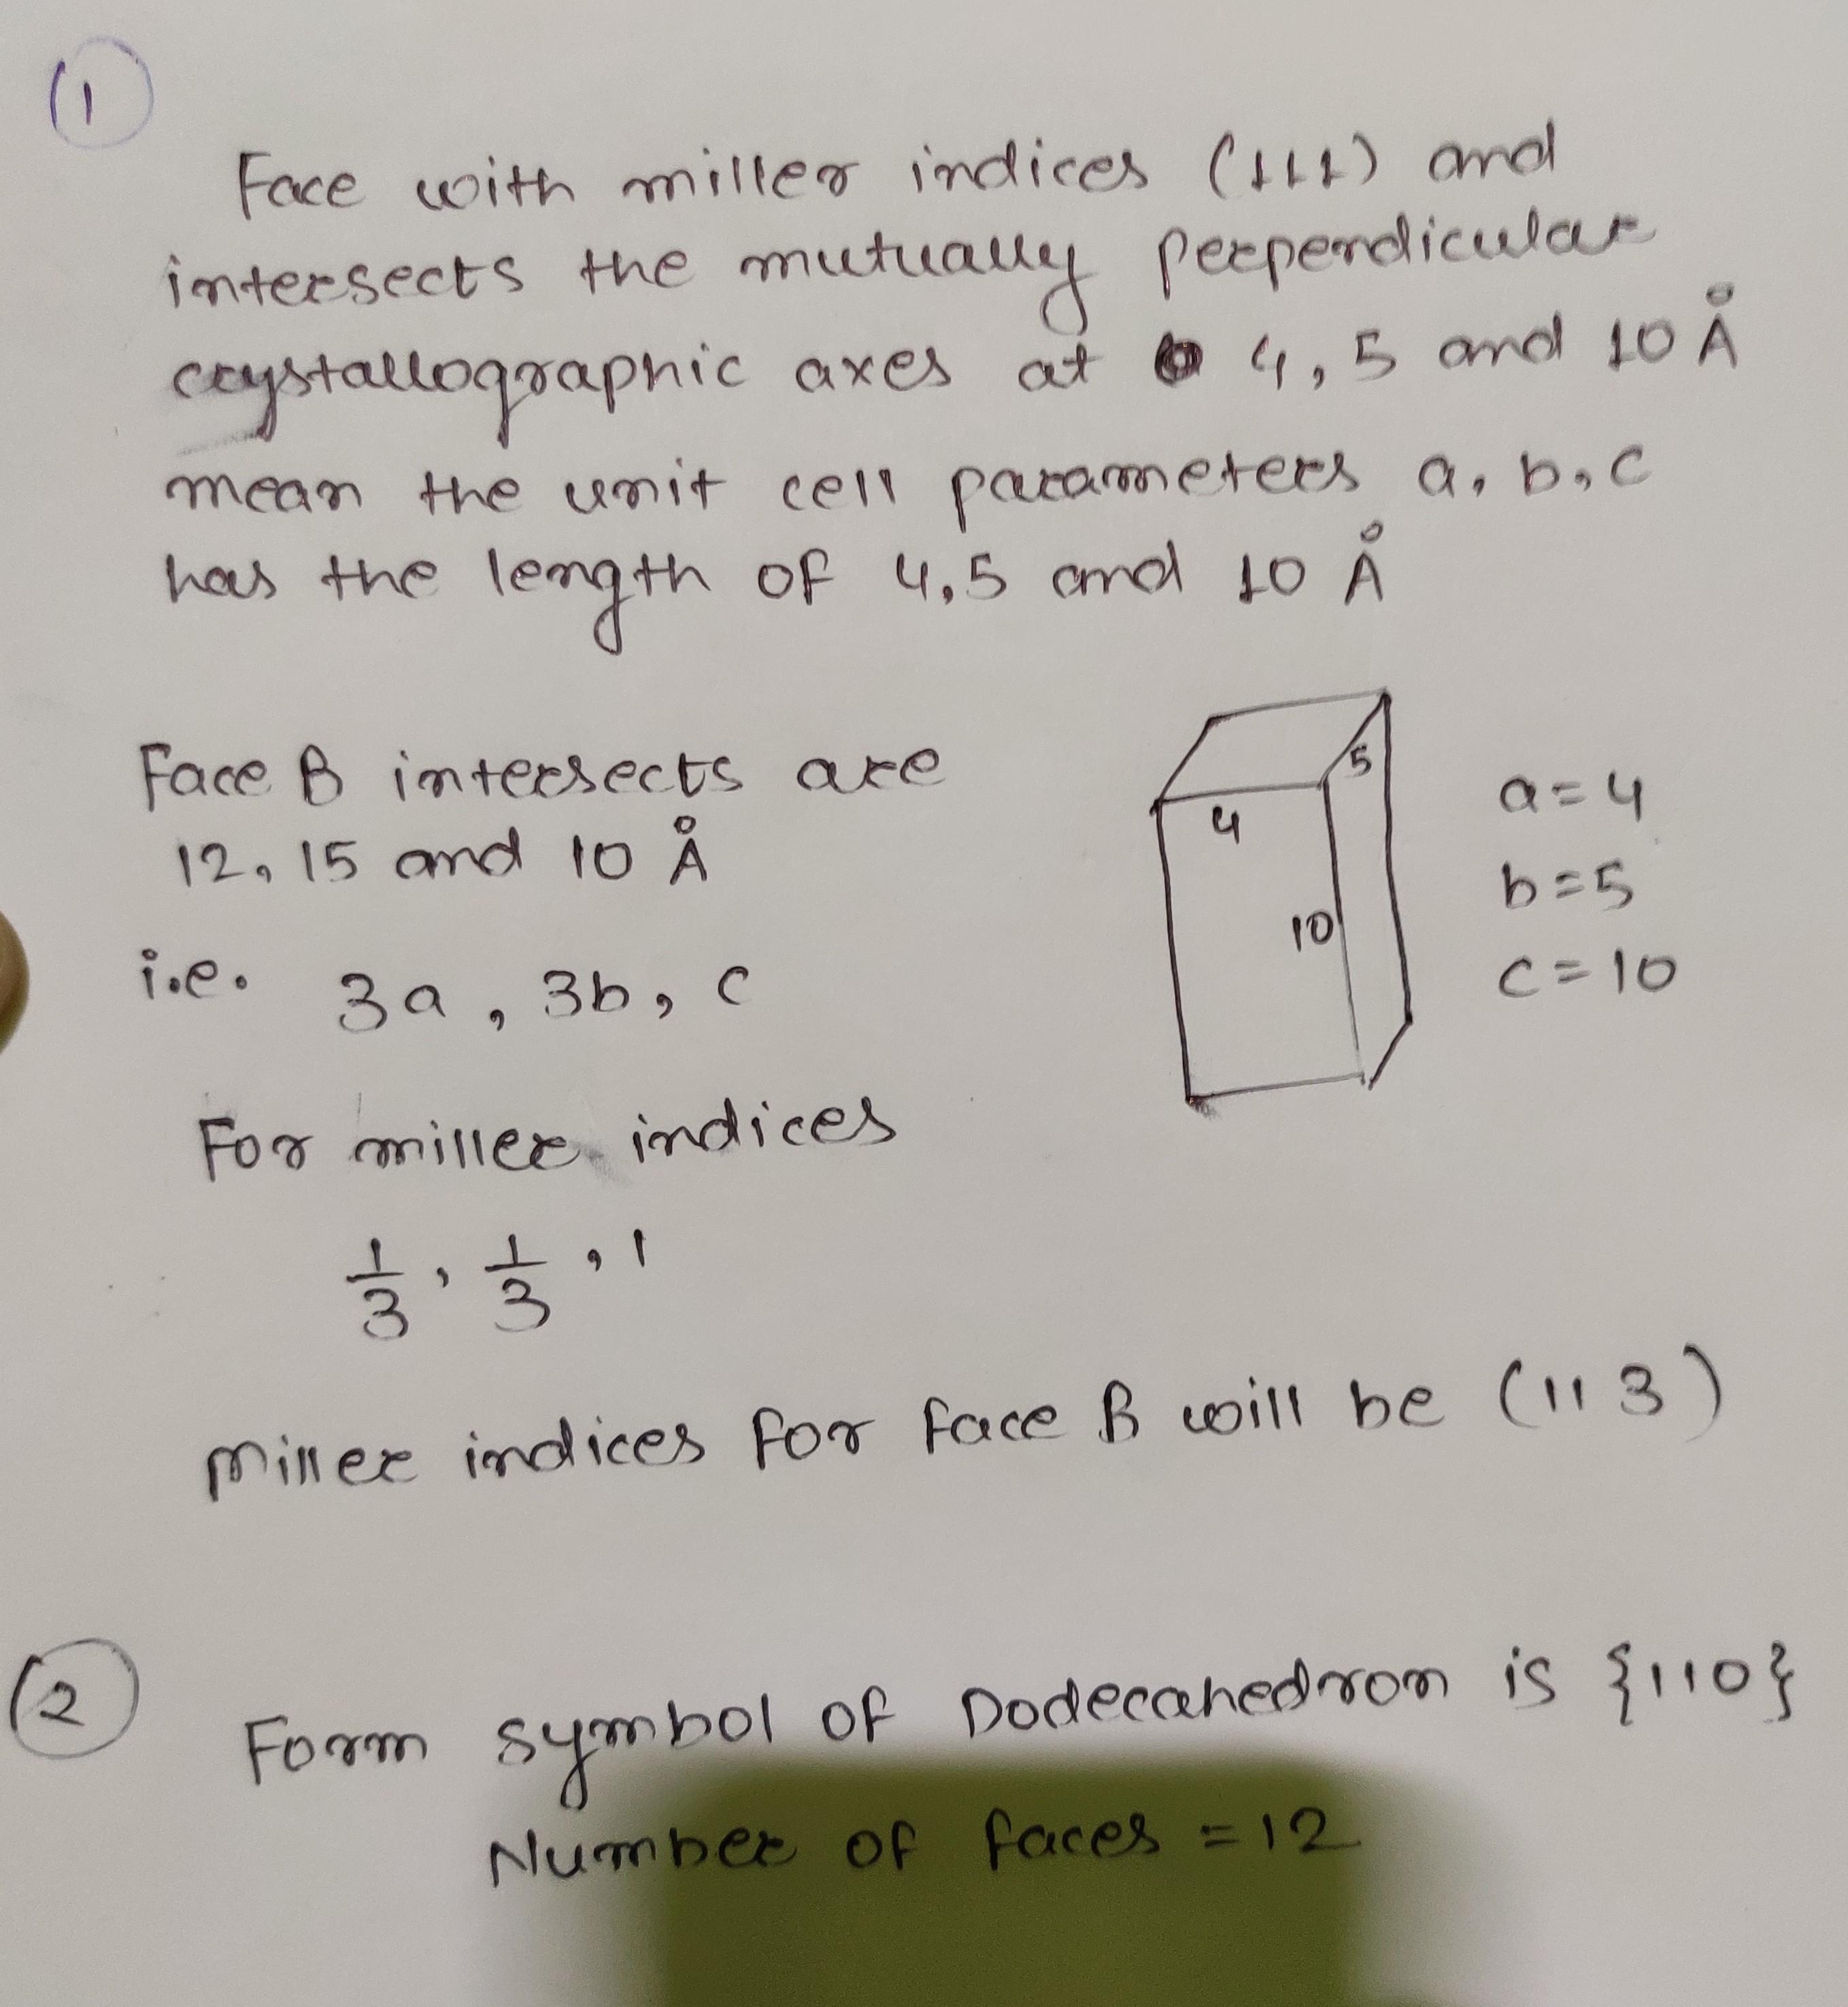 1
Face with miller indices (111) and
intersects the mutually perpendicular
crystallographic axes at 4, 5 and 10 Å
mean the unit cell parameters a, b, c
has the length of 4, 5 and 10 Å
Face B intersects are
12, 15 and 10 Å
i.e. 3a, 3b, c
5
4
10
a = 4
b = 5
c = 10
For miller indices
1/3, 1/3, 1
Miller indices for face B will be (113)
2
Form symbol of Dodecahedron is {110}
Number of faces = 12